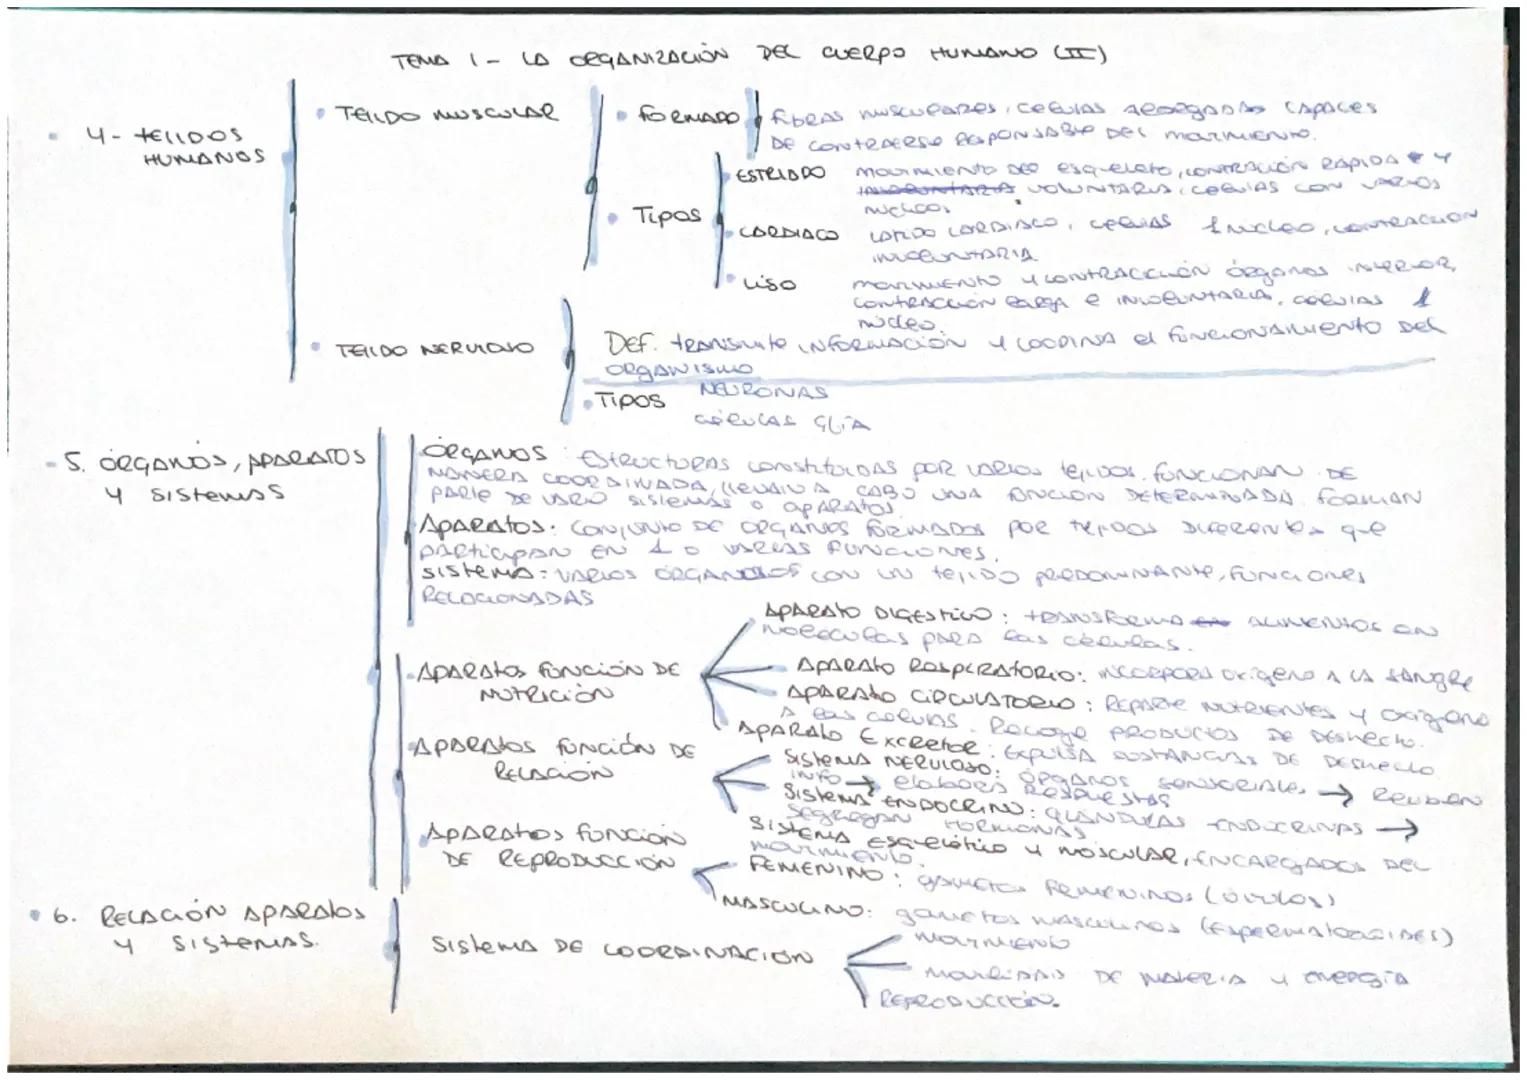 TEMA 1 - LA ORGANIZACIÓN DEL CUERPO HUMANO (II)
4- TEJIDOS HUMANOS
TEJIDO MUSCULAR
FORMADO
FIBRAS MUSCULARES, CÉLULAS ALARGADAS CAPACES
DE CONTRAERSE RESPONSABLE DEL MOVIMIENTO.
TIPOS
ESTRIADO MOVIMIENTO DEL ESQUELETO, CONTRACCIÓN RÁPIDA Y
VOLUNTARIA, CÉLULAS CON VARIOS
NÚCLEOS
CARDIACO LATIDO CARDIACO, CÉLULAS 1 NÚCLEO, CONTRACCION
INVOLUNTARIA
LISO MOVIMIENTO Y CONTRACCIÓN ÓRGANOS INTERIOR,
CONTRACCIÓN LARGA E INVOLUNTARIA, CÉLULAS 1
NÚCLEO.
TEJIDO NERVIOSO
DEF. TRANSMITE INFORMACIÓN Y COORDINA EL FUNCIONAMIENTO DEL
ORGANISMO
TIPOS NEURONAS
CÉLULAS GLÍA
5. ÓRGANOS, APARATOS
Y SISTEMAS
ÓRGANOS: ESTRUCTURAS CONSTITUIDAS POR VARIOS TEJIDOS. FUNCIONAN DE
MANERA COORDINADA, LLEVAN A CABO UNA FUNCIÓN DETERMINADA. FORMAN
PARTE DE VARIO SISTEMAS O APARATOS.
APARATOS: CONJUNTO DE ORGANOS FORMADOS POR TEJIDOS DIFERENTES QUE
PARTICIPAN EN 1 O VARIAS FUNCIONES.
SISTEMA: VARIOS ORGANOS CON UN TEJIDO PREDOMINANTE, FUNCIONES
RELACIONADAS
APARATOS FUNCIÓN DE
NUTRICIÓN
APARATO DIGESTIVO: TRANSFORMA ALIMENTOS EN
MOLECULAS PARA LAS CÉLULAS.
APARATO RESPIRATORIO: INCORPORA OXIGENO A LA SANGRE
APARATO CIRCULATORIO: REPARTE NUTRIENTES Y OXIGENO
A LAS CELULAS. RECOGE PRODUCTOS DE DESHECHO.
APARATO EXCRETOR: EXPULSA SUSTANCIAS DE DESHECHO
APARATOS FUNCIÓN DE
RELACIÓN
SISTEMA NERVIOSO: ÓRGANOS SENSORIALES → RECIBEN
INFO → ELABORA RESPUESTAS
SISTEMA ENDOCRINO: GLANDULAS ENDOCRINAS →
SEGREGAN HORMONAS
SISTEMA ESQUELÉTICO Y MUSCULAR, ENCARGADOS DEL
MOVIMIENTO.
APARATOS FUNCION
DE REPRODUCCIÓN
FEMENINO: GAMETOS FEMENINOS (ÓVULOS)
MASCULINO: GAMETOS MASCULINOS (ESPERMATOZOIDES)
6. RELACIÓN APARATOS
Y SISTEMAS.
SISTEMA DE COORDINACIÓN
MOVIMIENTO
DE MATERIA Y ENERGÍA
REPRODUCCIÓN.